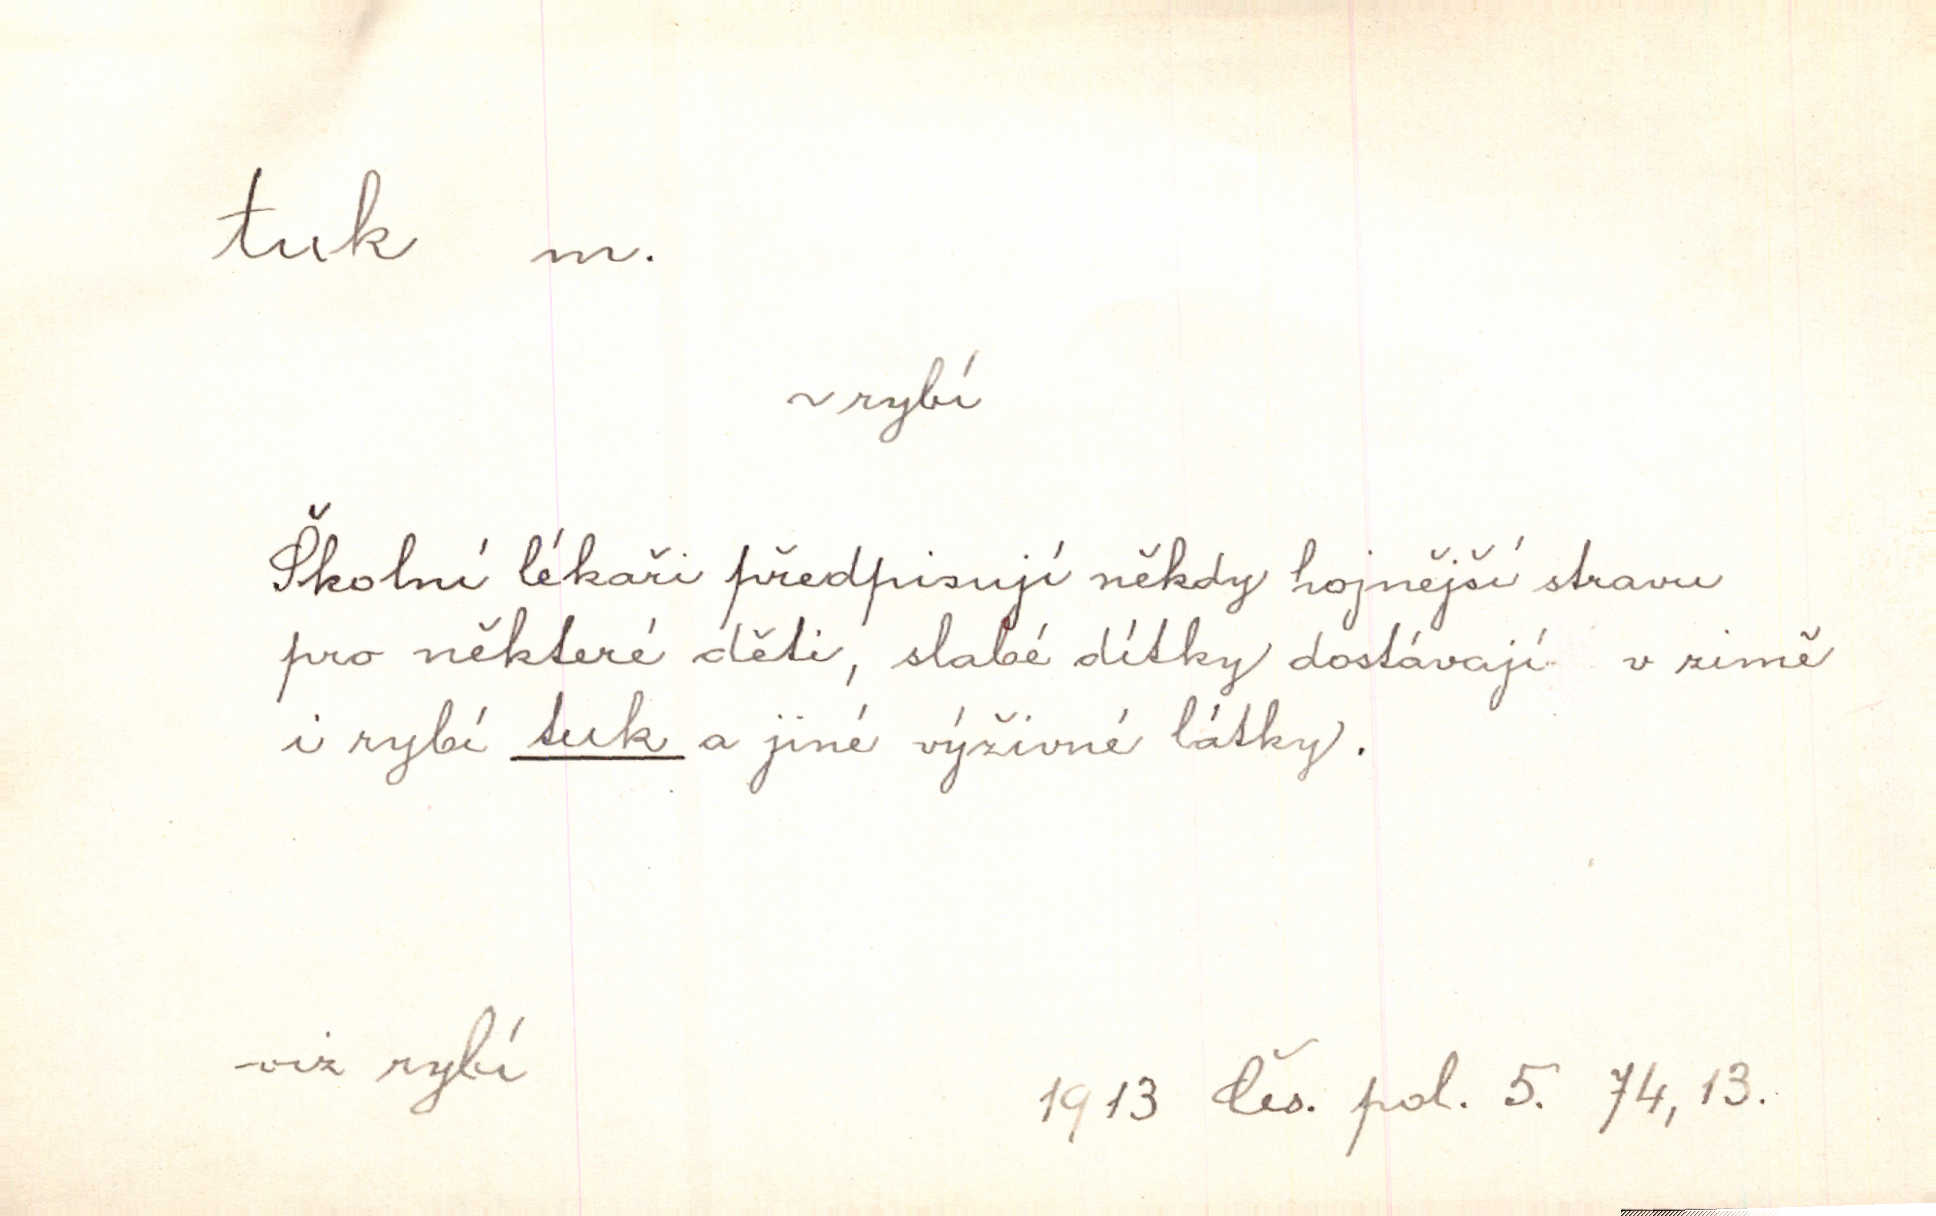 tuk m.
~ rybí
Školní lékaři předpisují někdy hojnější stravu
pro některé děti, slabé dítky dostávají v zimě
i rybí tuk a jiné výživné látky.
viz rybí
1913 Čes. pol. 5. 74, 13.